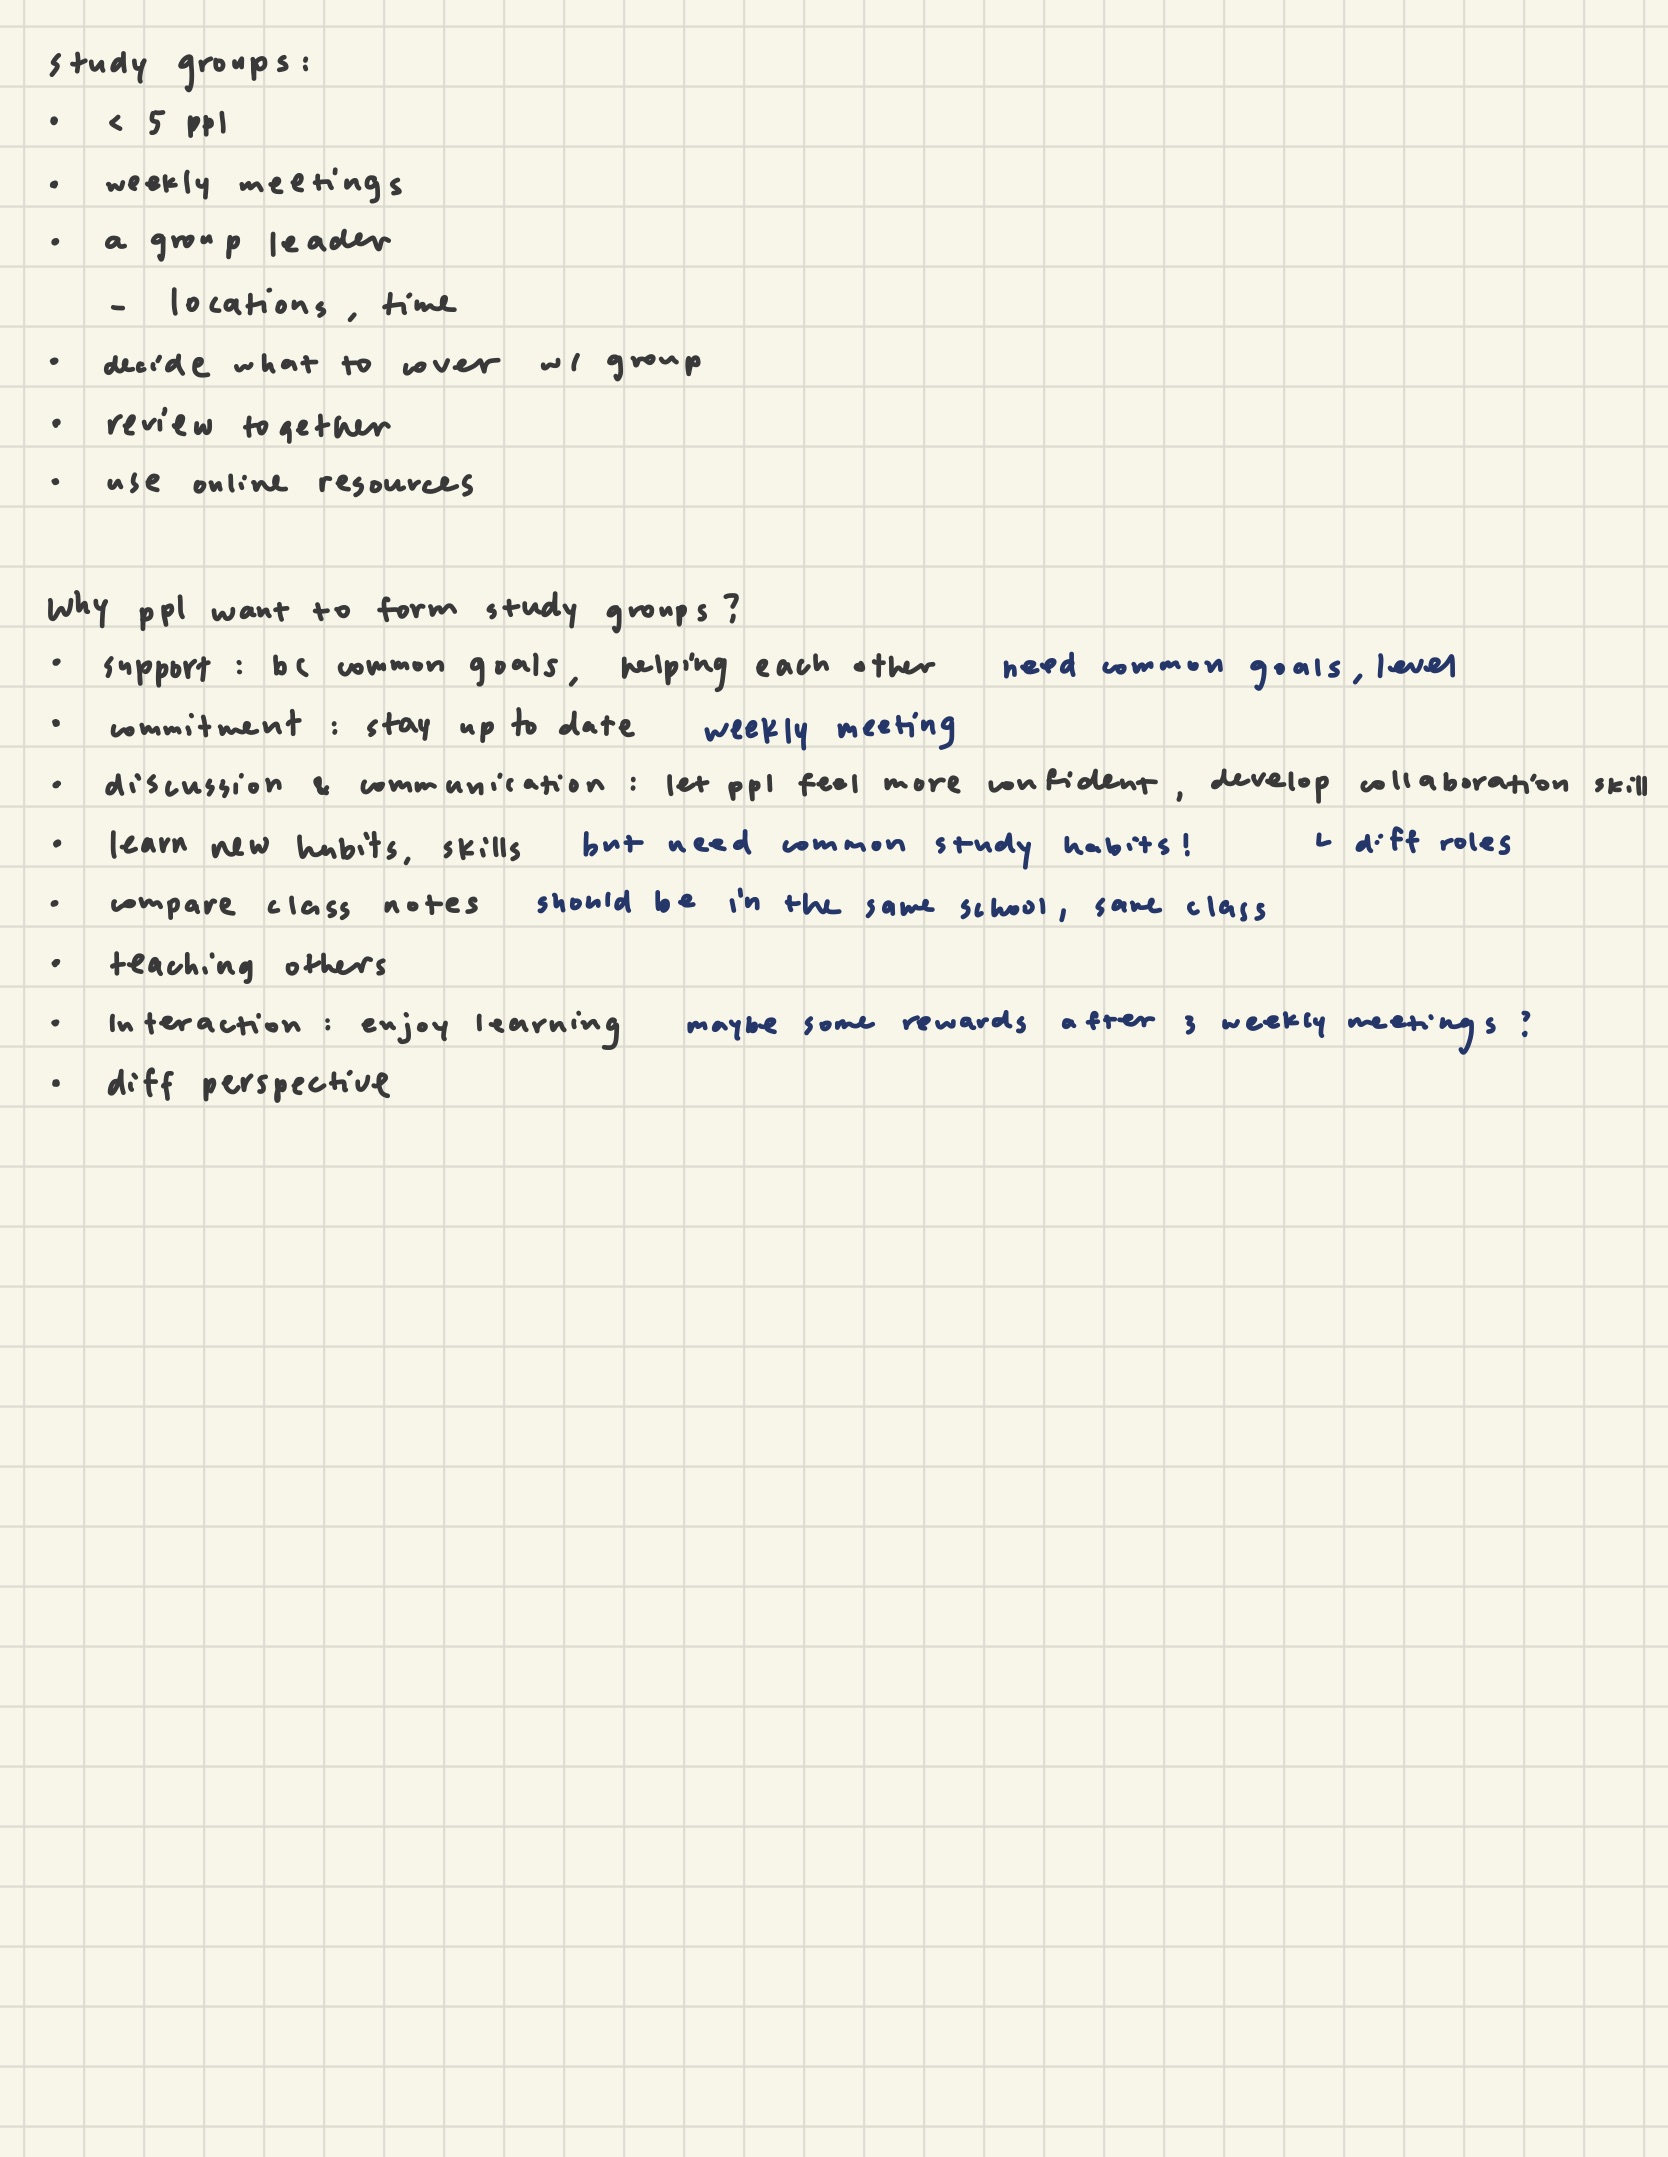 study groups:
• < 5 ppl
• weekly meetings
• a group leader
- locations, time
• decide what to cover w/ group
• review together
• use online resources
Why ppl want to form study groups?
• support : bc common goals, helping each other need common goals, level
• commitment : stay up to date weekly meeting
• discussion & communication : let ppl feel more confident, develop collaboration skill
• learn new habits, skills but need common study habits! ↳ diff roles
• compare class notes should be in the same school, same class
• teaching others
• Interaction : enjoy learning maybe some rewards after 3 weekly meetings ?
• diff perspective